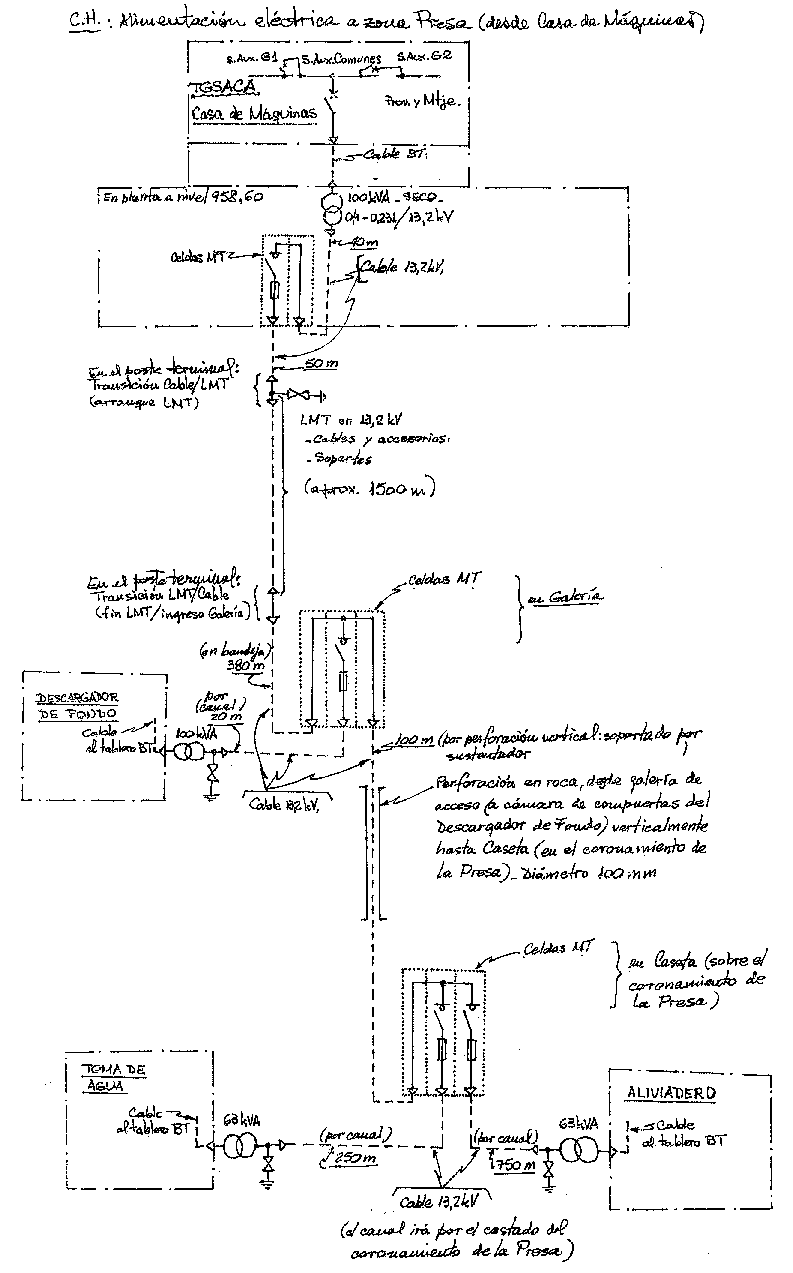 C.H.: Alimentación eléctrica a zona Presa (desde Casa de Máquinas)
S.Aux.G1
S.Aux.Comunes
S.Aux.G2
TGSACA
Casa de Máquinas
Prov. y Mtje.
Cable BT.
En planta a nivel 958,60
100 kVA - SECO -
0,4-0,231/13,2 kV
10m
Celdas MT
Cable 13,2 kV.
50 m
En el poste terminal:
Transición Cable/LMT
(arranque LMT)
LMT en 13,2 kV
- Cables y accesorios.
- Soportes
(aprox. 1500 m)
En el poste terminal:
Transición LMT/Cable
(fin LMT/ingreso Galería)
Celdas MT
en Galería
(en bandeja)
380 m
DESCARGADOR
DE FONDO
Cable
al tablero BT
100 kVA
(por
canal)
20 m
Cable 13,2 kV.
100 m (por perforación vertical: soportado por
sustentador)
Perforación en roca, desde galería de
acceso (a cámara de compuertas del
Descargador de Fondo) verticalmente
hasta Caseta (en el coronamiento de
la Presa)- Diámetro 100 mm
Celdas MT
en Caseta (sobre el
coronamiento de
la Presa)
TOMA DE
AGUA
Cable
al tablero BT
63 kVA
(por canal)
250 m
(por canal)
750 m
63 kVA
ALIVIADERO
Cable
al tablero BT
Cable 13,2 kV
(el canal irá por el costado del
coronamiento de la Presa)